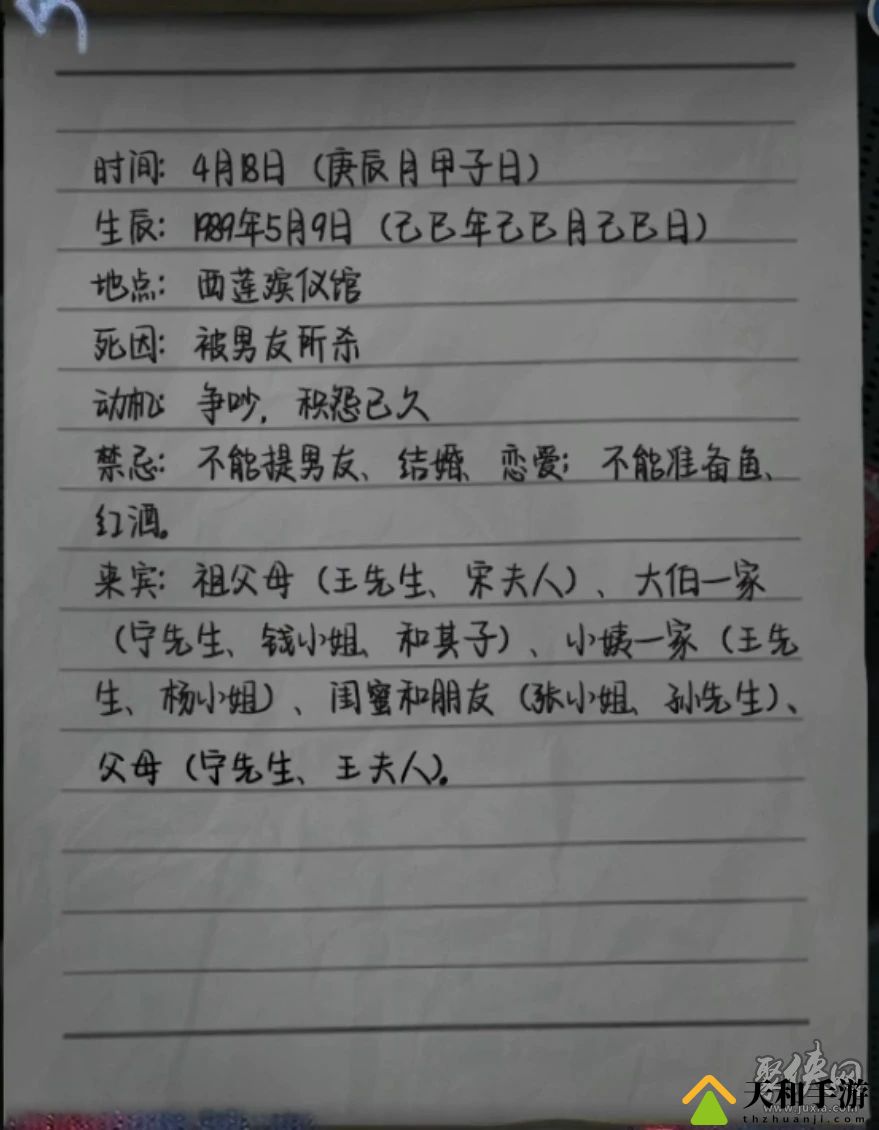 时间：4月18日（庚辰月甲子日）
生辰：1989年5月9日（己巳年己巳月己巳日）
地点：西莲殡仪馆
死因：被男友所杀
动机：争吵，积怨已久
禁忌：不能提男友、结婚、恋爱；不能准备鱼、
红酒。
来宾：祖父母（王先生、宋夫人）、大伯一家
（宁先生、钱小姐、和其子）、小姨一家（王先
生、杨小姐）、闺蜜和朋友（张小姐、孙先生）、
父母（宁先生、王夫人）。
聚侠网
www.juxia.com
天和手游
thzhuanji.com